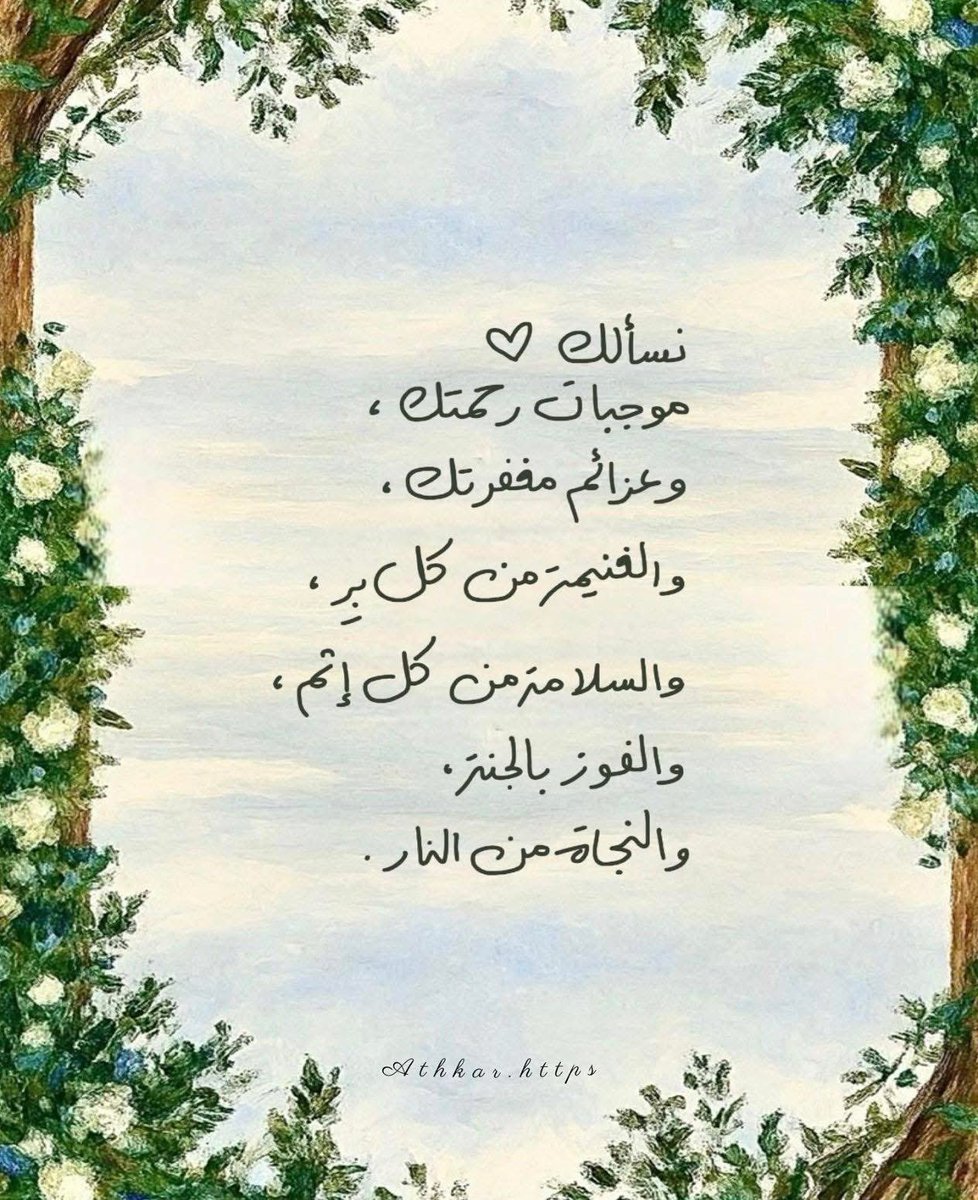 نسألك ♡
موجبات رحمتك ،
وعزائم مغفرتك ،
والغنيمة من كل برٍ ،
والسلامة من كل إثم ،
والفوز بالجنة ،
والنجاة من النار .
Athkar.https